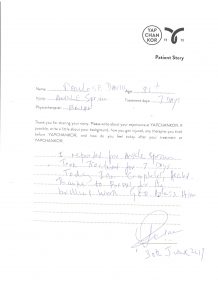 YAP
CHAN
KOR
Patient Story
Name : Age : 81
Injury : Ankle Sprain Treatment days : 7 Days
Physiotherapist :
Thank you for sharing your story. Please write about your experience at YAPCHANKOR. If
possible, write a little about your background, how you got injured, any therapies you tried
before YAPCHANKOR, and how do you feel today after your treatment at
YAPCHANKOR.
I reported for Ankle Sprain
Took Treatment for 7 Days
Today I am Completely
Thanks to for his
brilliant work. God Bless Him
30th June 24